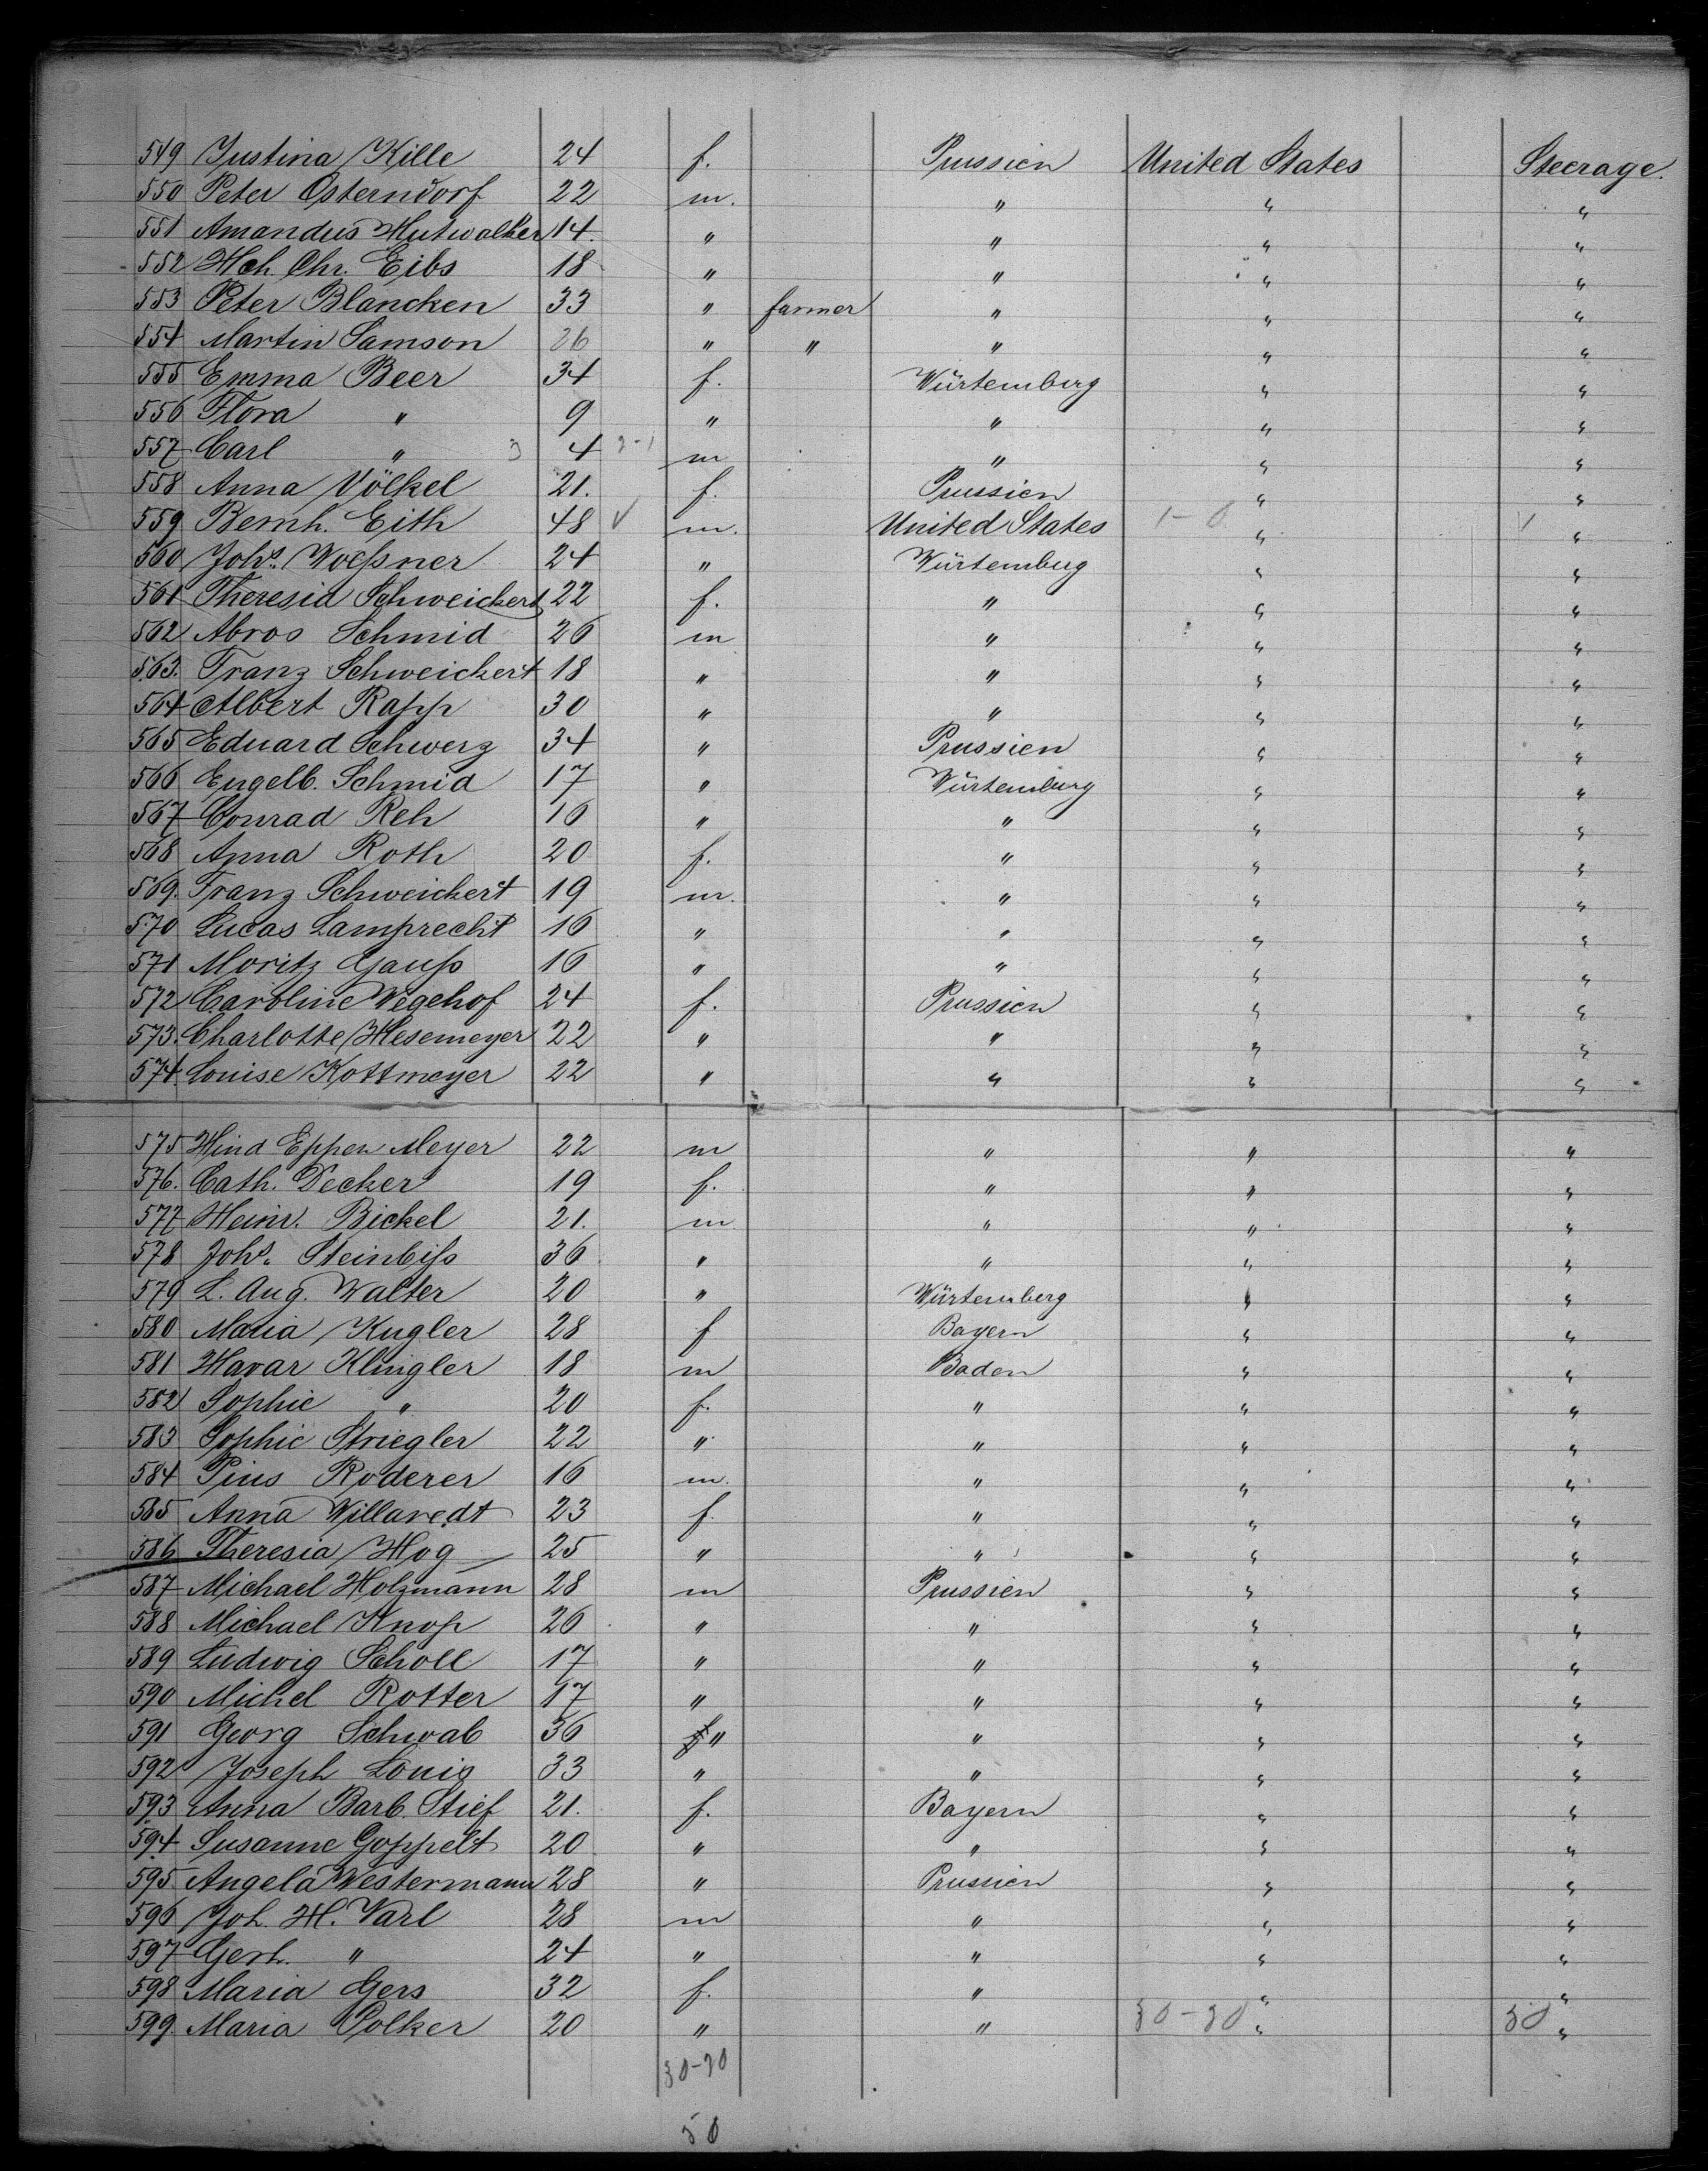 549 Justina Kille 24 f. Prussien United States Steerage.
550 Peter Osterndorf 22 m. " " "
551 Amandus Hutwalker 14. " " " "
552 Hch. Chr. Eibs 18 " " " "
553 Peter Blancken 33 " farmer " " "
554 Martin Samson 26 " " " " "
555 Emma Beer 34 f. Würtemberg " "
556 Flora " 9 " " " "
557 Carl " 3 4 3-1 m " " "
558 Anna Völkel 21. f. Prussien " "
559 Bernh. Eith 48 V m. United States 1-0 " V "
560 Johs. Woeßner 24 " Würtemberg " "
561 Theresia Schweickert 22 f. " " "
562 Abros Schmid 26 m " " "
563. Franz Schweickert 18 " " " "
564 Albert Rapp 30 " " " "
565 Eduard Schwerz 34 " Prussien " "
566 Engelb. Schmid 17 " Würtemburg " "
567 Conrad Reh 16 " " " "
568 Anna Roth 20 f. " " "
569. Franz Schweickert 19 m. " " "
570 Lucas Lamprecht 16 " " " "
571 Moritz Gauß 16 " " " "
572 Caroline Wegehof 24 f. Prussien " "
573. Charlotte Hesemeyer 22 " " " "
574. Louise Kottmeyer 22 " " " "
575 Hind Eppen Meyer 22 m " " "
576. Cath. Decker 19 f. " " "
577 Heinr. Bickel 21. m " " "
578 Johs. Steinbiß 36 " " " "
579 L. Aug. Walter 20 " Würtemberg " "
580 Maria Kugler 28 f Bayern " "
581 Havar Klingler 18 m Baden " "
582 Sophie " 20 f. " " "
583 Sophie Striegler 22 " " " "
584 Pius Roderer 16 m. " " "
585 Anna Willaredt 23 f. " " "
586 Theresia Hog 25 " " " "
587 Michael Holzmann 28 m Prussien " "
588 Michael Knop 26 " " " "
589 Ludwig Scholl 17 " " " "
590 Michel Rotter 17 " " " "
591 Georg Schwab 36 f " " " "
592 Joseph Louis 33 " " " "
593 Anna Barb. Stief 21. f. Bayern " "
594 Susanne Goppelt 20 " " " "
595 Angela Westermann 28 " Prussien " "
596 Joh. H. Varl 28 m " " "
597 Gerh. " 24 " " " "
598 Maria Gers 32 f. " " "
599. Maria Polker 20 " " 30-20 " 50 "
30-20
50